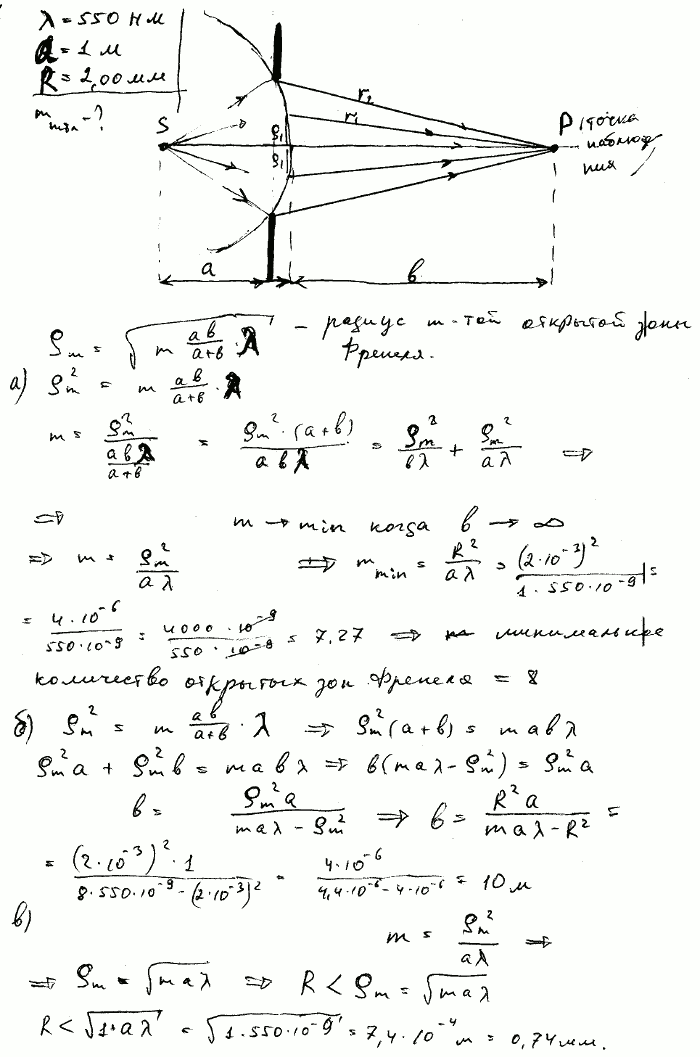 λ = 550 нм
a = 1 м
R = 2,00 мм
m min - ?
S
r₂
r₁
ρ₁
ρ₁
P (точка
наблюде
ния
a
b
ρm = √(m ab/(a+b) · λ) – радиус m-той открытой зоны
Френеля.
а) ρm² = m ab/(a+b) · λ
m = ρm²/(abλ/(a+b)) = ρm²·(a+b)/(abλ) = ρm²/(bλ) + ρm²/(aλ) ⇒
⇒ m → min когда b → ∞
⇒ m = ρm²/(aλ) ⇒ m min = R²/(aλ) = (2·10⁻³)²/(1·550·10⁻⁹) =
= 4·10⁻⁶/(550·10⁻⁹) = 4000·10⁻⁹/(550·10⁻⁹) = 7,27 ⇒ минимальное
количество открытых зон Френеля = 8
б) ρm² = m ab/(a+b) · λ ⇒ ρm²(a+b) = mabλ
ρm²a + ρm²b = mabλ ⇒ b(maλ - ρm²) = ρm²a
b = ρm²a/(maλ - ρm²) ⇒ b = R²a/(maλ - R²) =
= (2·10⁻³)²·1/(8·550·10⁻⁹ - (2·10⁻³)²) = 4·10⁻⁶/(4,4·10⁻⁶ - 4·10⁻⁶) = 10 м
в)
m = ρm²/(aλ) ⇒
⇒ ρm = √(maλ) ⇒ R < ρm = √(maλ)
R < √(1·aλ) = √(1·550·10⁻⁹) = 7,4·10⁻⁴ м = 0,74 мм.